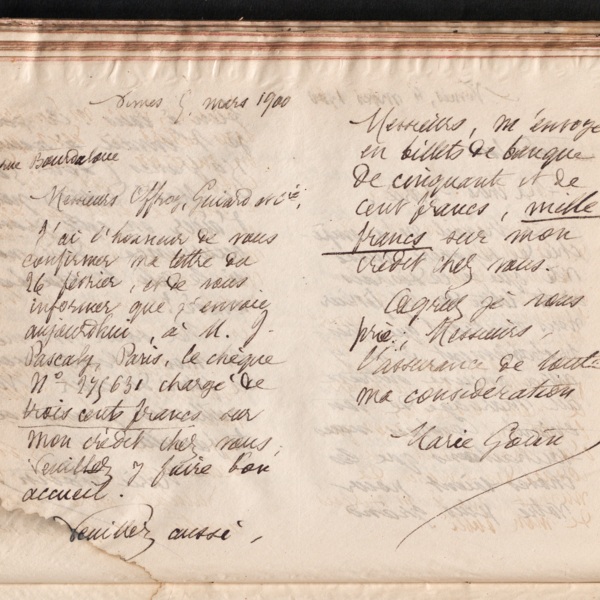 Nimes 5 mars 1900
rue Bourdaloue
Messieurs Offroy, Guiard et Cie,
J'ai l'honneur de vous
confirmer ma lettre du
26 février, et de vous
informer que j'envoie
aujourdhui, à M. J.
Pascaly, Paris, le chèque
No 275631 chargé de
trois cents francs sur
mon crédit chez vous;
Veuillez y faire bon
accueil.
Veuillez aussi,
Messieurs, m'envoyer
en billets de banque
de cinquante et de
cent francs, mille
francs sur mon
crédit chez vous.
Agréez je vous
prie, Messieurs,
l'assurance de toute
ma considération
Marie Godin